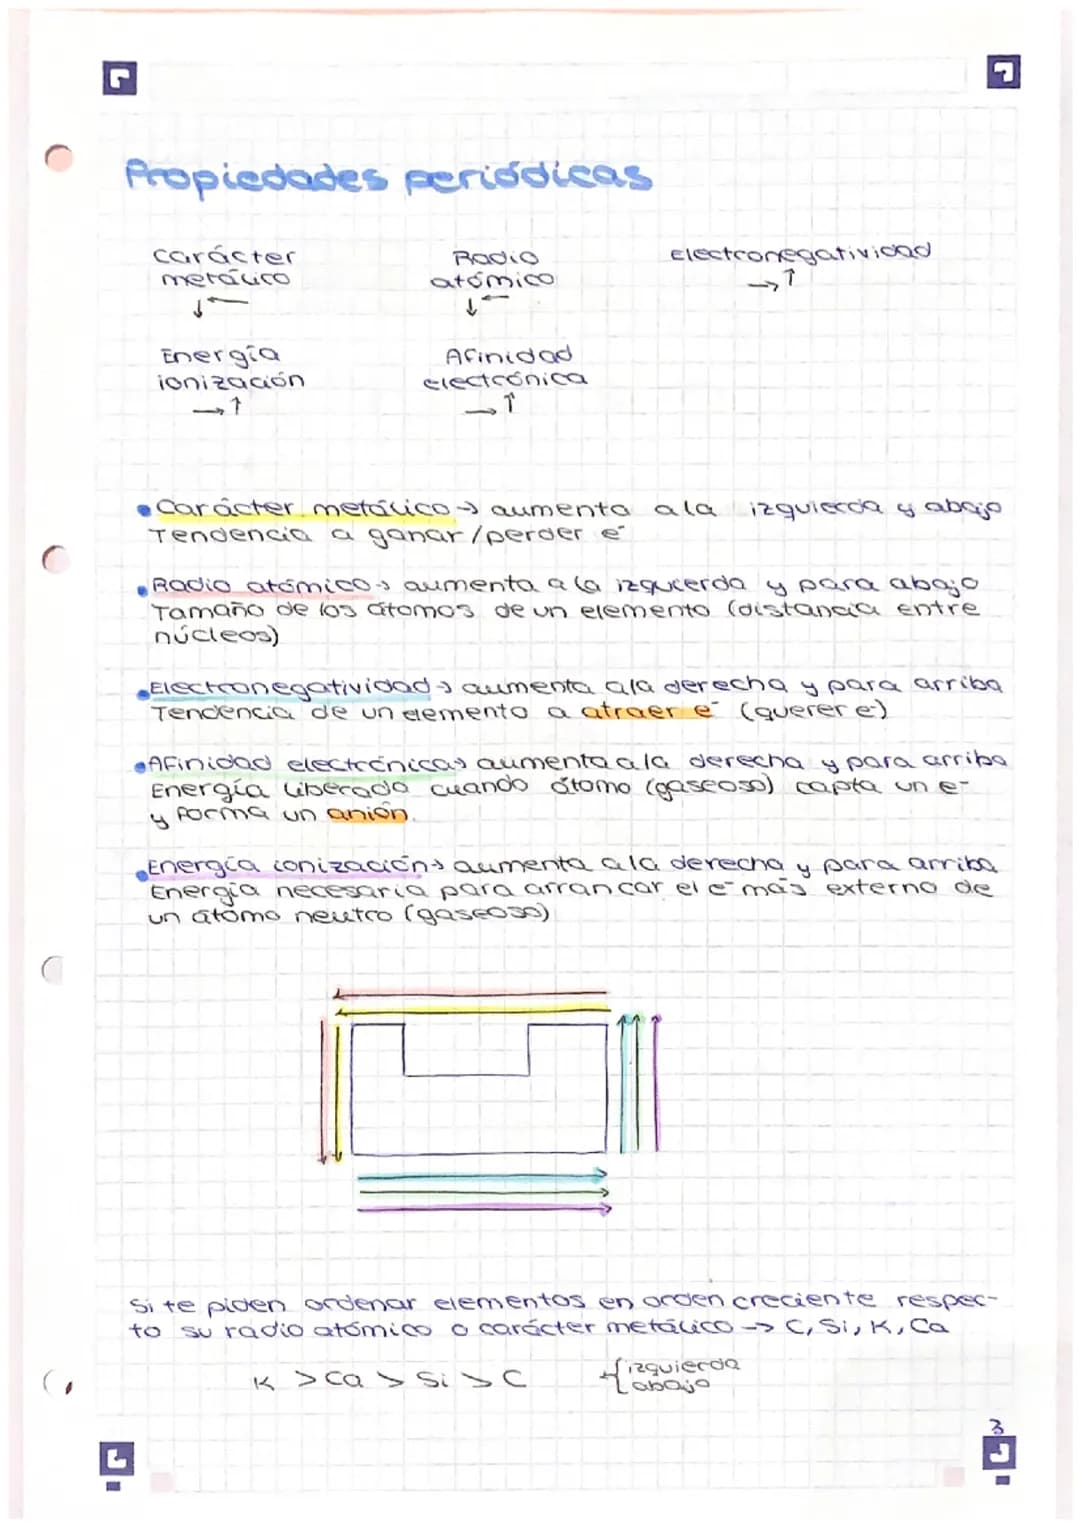 Propiedades periódicas
carácter metálico
↓←
Radio atómico
↓←
Electronegatividad
→↑
Energía ionización
→↑
Afinidad electrónica
→↑
• Carácter metálico → aumenta a la izquierda y abajo
Tendencia a ganar/perder e⁻
• Radio atómico → aumenta a la izquierda y para abajo
Tamaño de los átomos de un elemento (distancia entre
núcleos)
• Electronegatividad → aumenta a la derecha y para arriba
Tendencia de un elemento a atraer e⁻ (querer e⁻)
• Afinidad electrónica → aumenta a la derecha y para arriba
Energía liberada cuando átomo (gaseoso) capta un e⁻
y forma un anión.
• Energía ionización → aumenta a la derecha y para arriba
Energía necesaria para arrancar el e⁻ más externo de
un átomo neutro (gaseoso)
Si te piden ordenar elementos en orden creciente respec-
to su radio atómico o carácter metálico → C, Si, K, Ca
K > Ca > Si > C
{izquierda
abajo
3